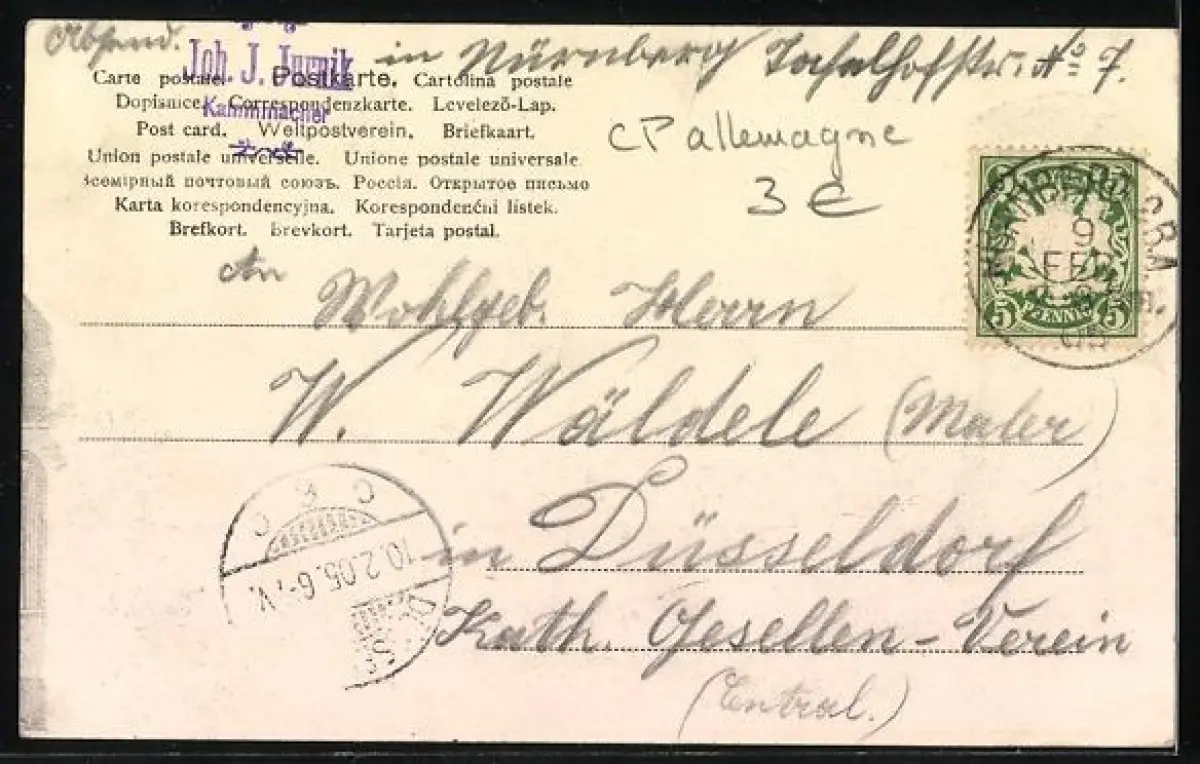 Absend. Joh. J. Jurnik in Nürnberg Tafelhofstr. No 7.
Kammmacher
Carte postale. Postkarte. Cartolina postale
Dopisnice. Correspondenzkarte. Levelező-Lap.
Post card. Weltpostverein. Briefkaart.
Union postale universelle. Unione postale universale
Всемірный почтовый союзъ. Россія. Открытое письмо
Karta korespondencyjna. Korespondenční listek.
Brefkort. Brevkort. Tarjeta postal.
CP allemagne
3 €
NÜRNBERG
9
FEB
05
5 PFENNIG 5
An
Wohlgeb. Herrn
W. Wäldele (Maler)
in Düsseldorf
Kath. Gesellen-Verein
(Central.)
10.2.05.6-7V.